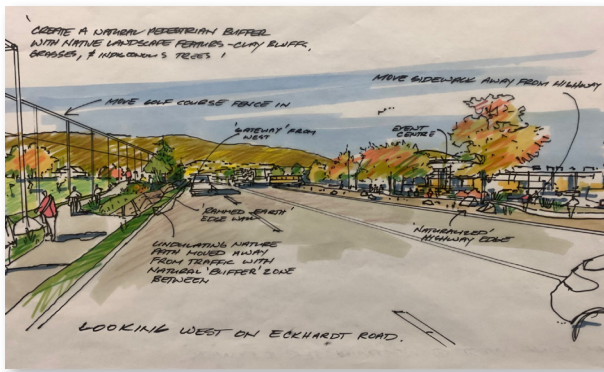 CREATE A NATURAL PEDESTRIAN BUFFER
WITH NATIVE LANDSCAPE FEATURS - CLAY BLUFFS,
GRASSES, & INDIGENOUS TREES!
MOVE SIDEWALK AWAY FROM HIGHWAY
MOVE GOLF COURSE FENCE IN
'GATEWAY' FROM
WEST
EVENT
CENTRE
'RAMMED EARTH'
EDGE WALL
'NATURALIZED'
HIGHWAY EDGE
UNDULATING NATURE
PATH MOVED AWAY
FROM TRAFFIC WITH
NATURAL 'BUFFER' ZONE
BETWEEN
LOOKING WEST ON ECKHARDT ROAD.